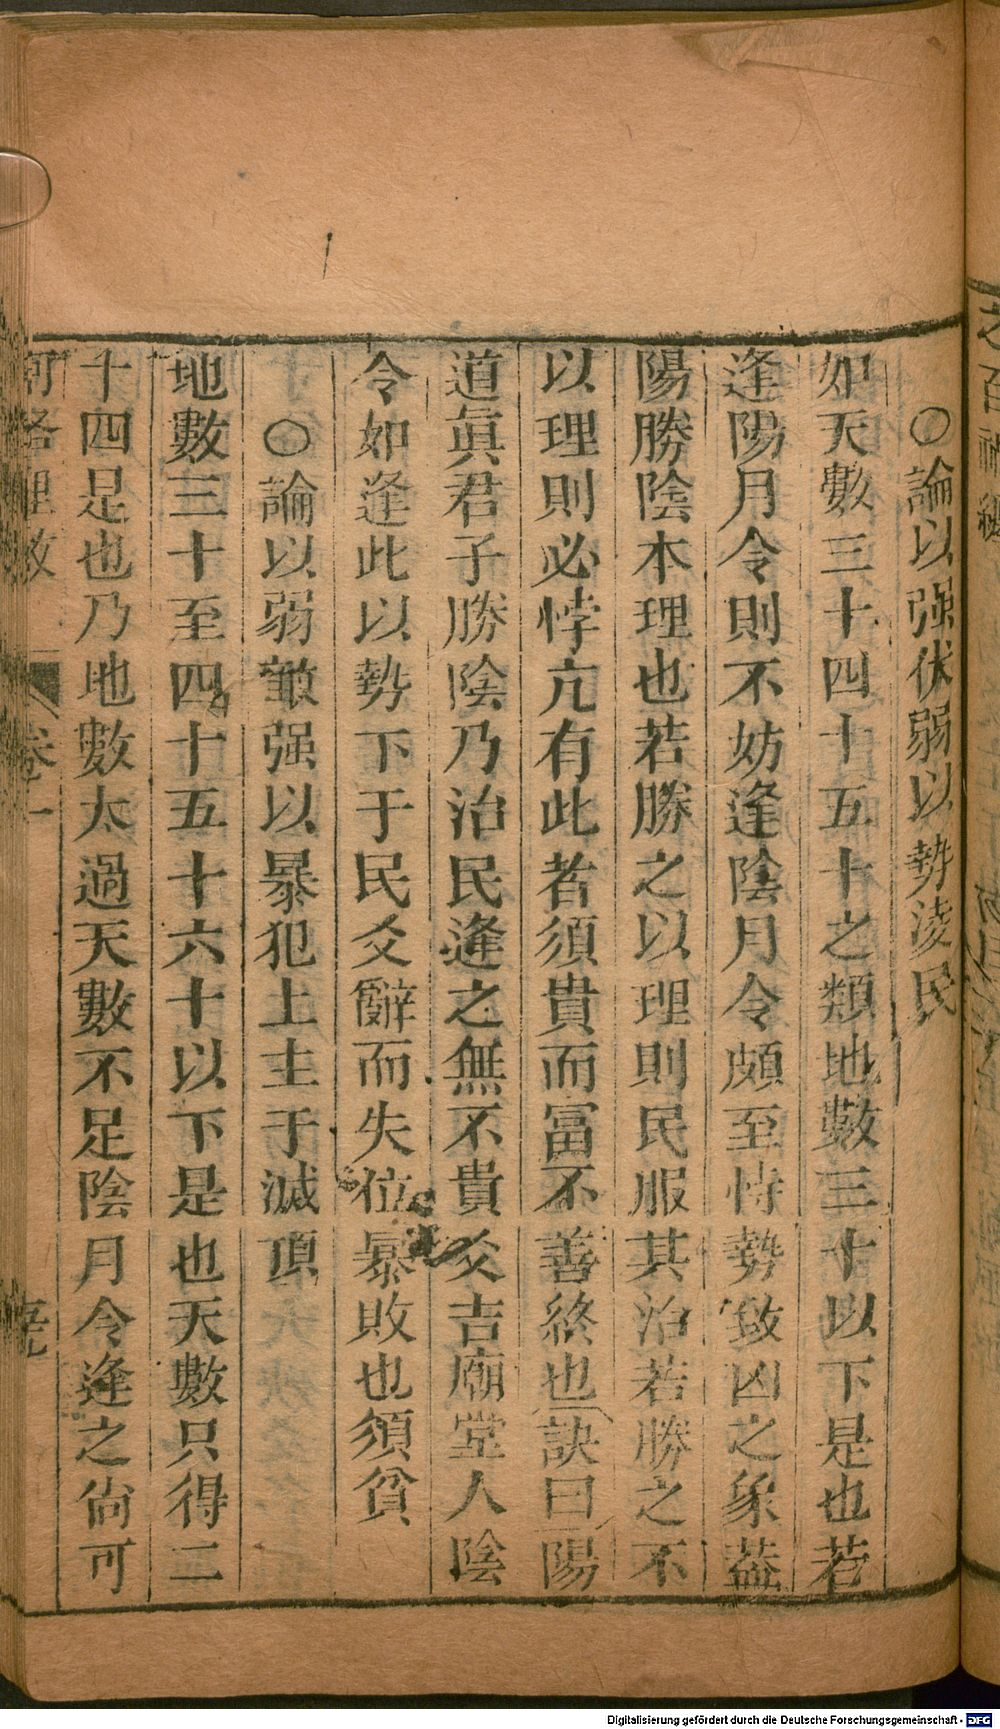 ○論以强伏弱以勢淩民
如天數三十四十五十之類地數三十以下是也若
逢陽月令則不妨逢陰月令頗至恃勢致凶之象葢
陽勝陰本理也若勝之以理則民服其治若勝之不
以理則必悖亢有此者須貴而富不善終也訣曰陽
道眞君子勝陰乃治民逢之無不貴爻吉廟堂人陰
令如逢此以勢下于民爻辭而失位暴敗也須貧
○論以弱敵强以暴犯上主于滅頂
地數三十至四十五十六十以下是也天數只得二
十四是也乃地數太過天數不足陰月令逢之尙可
河洛理數 卷一
Digitalisierung gefördert durch die Deutsche Forschungsgemeinschaft - DFG